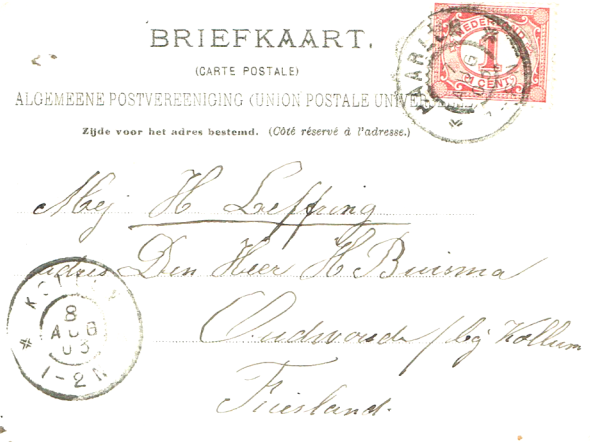 BRIEFKAART.
(CARTE POSTALE)
ALGEMEENE POSTVEREENIGING (UNION POSTALE UNIVERSELLE)
Zijde voor het adres bestemd. (Côté réservé à l'adresse.)
NEDERLAND
1
CENT
HAARLEM
AUG
Mej H Leffring
adres Den Heer H Buisma
Oudwoude / bij Kollum
Friesland.
KOLLUM
8
AUG
03
1-2N